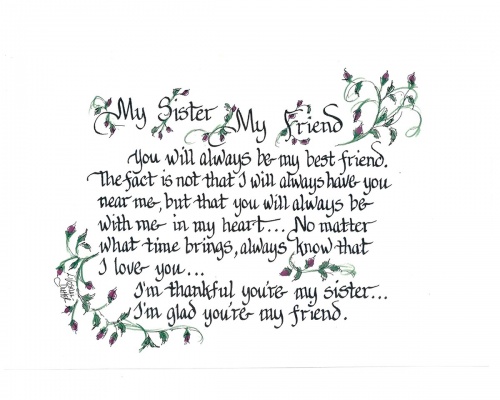 My Sister My Friend
You will always be my best friend.
The fact is not that I will always have you
near me, but that you will always be
with me in my heart... No matter
what time brings, always know that
I love you...
I'm thankful you're my sister...
I'm glad you're my friend.